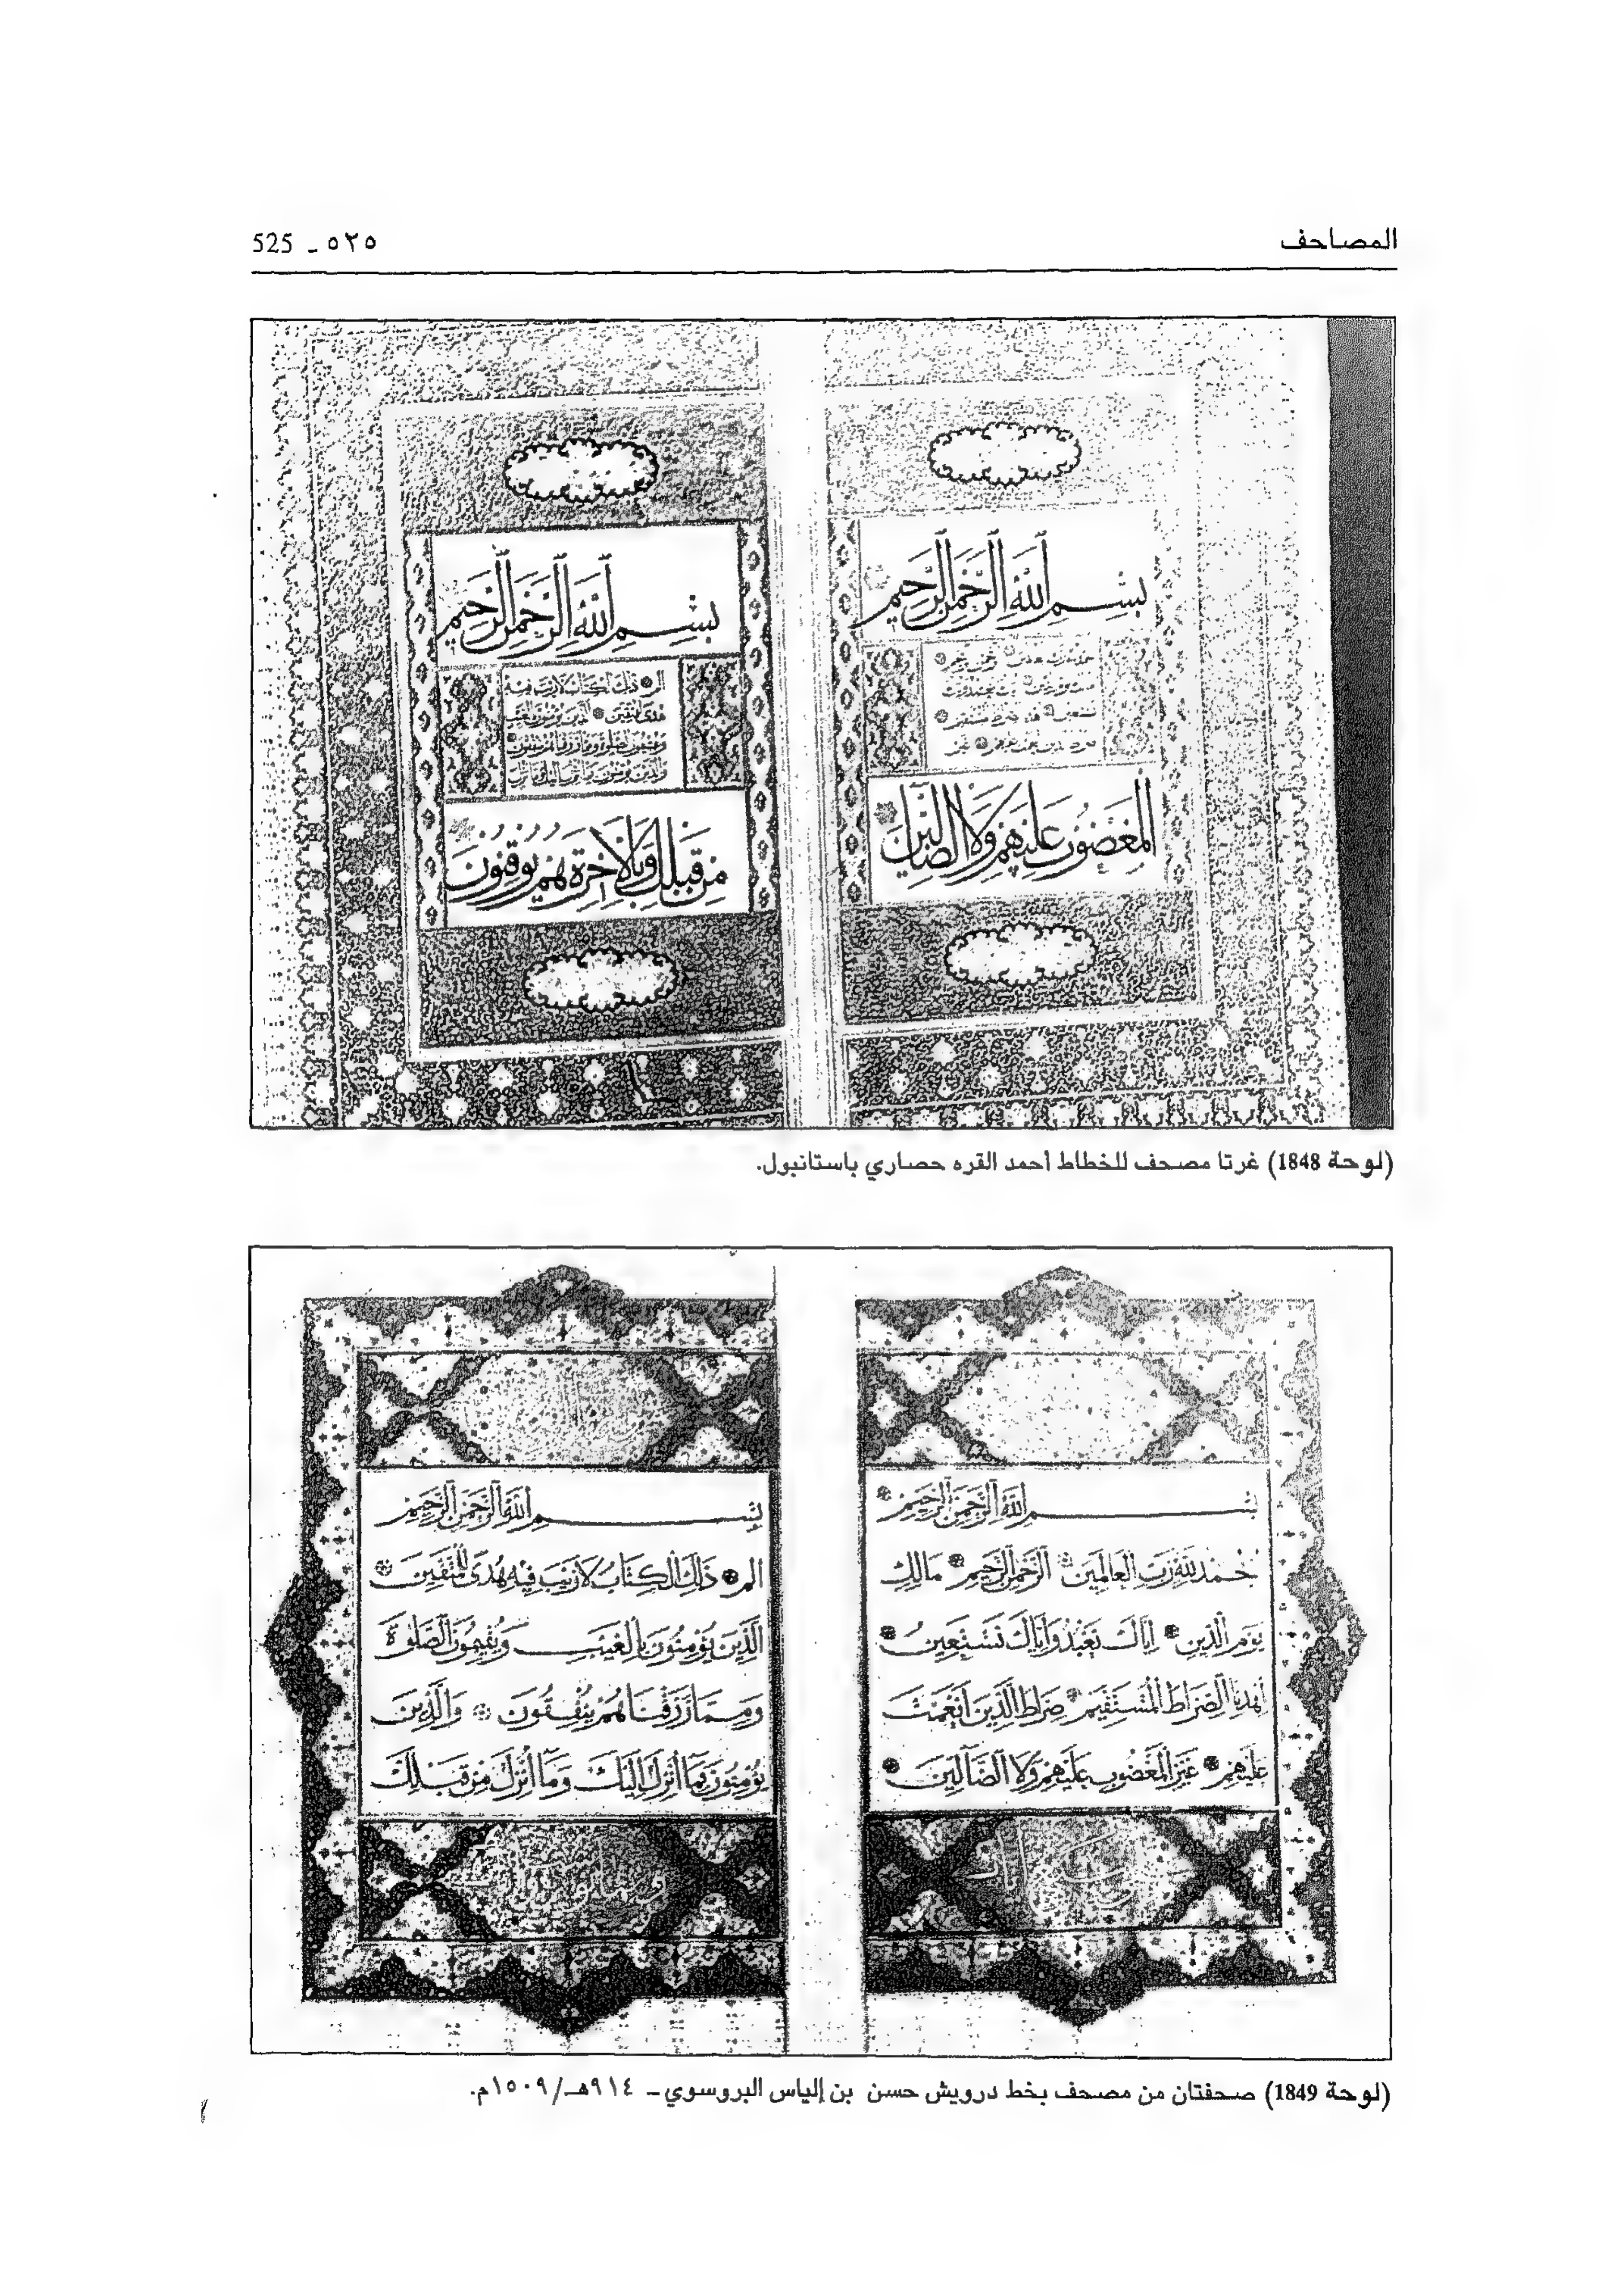 المصاحف
٥٢٥ - 525
بسم الله الرحمن الرحيم
المغضوب عليهم ولا الضالين
بسم الله الرحمن الرحيم
الم ذلك الكتاب لا ريب فيه
هدى للمتقين الذين يؤمنون بالغيب
ويقيمون الصلوة ومما رزقناهم ينفقون
والذين يؤمنون بما انزل اليك وما انزل
من قبلك وبالآخرة هم يوقنون
(لوحة 1848) غرتا مصحف للخطاط أحمد القره حصاري باستانبول.
بسم الله الرحمن الرحيم
الحمد لله رب العالمين الرحمن الرحيم مالك
يوم الدين اياك نعبد واياك نستعين
اهدنا الصراط المستقيم صراط الذين انعمت
عليهم غير المغضوب عليهم ولا الضالين
بسم الله الرحمن الرحيم
الم ذلك الكتاب لا ريب فيه هدى للمتقين
الذين يؤمنون بالغيب ويقيمون الصلوة
ومما رزقناهم ينفقون والذين
يؤمنون بما انزل اليك وما انزل من قبلك
(لوحة 1849) صحفتان من مصحف بخط درويش حسن بن إلياس البروسوي - ٩١٤هـ/١٥٠٩م.